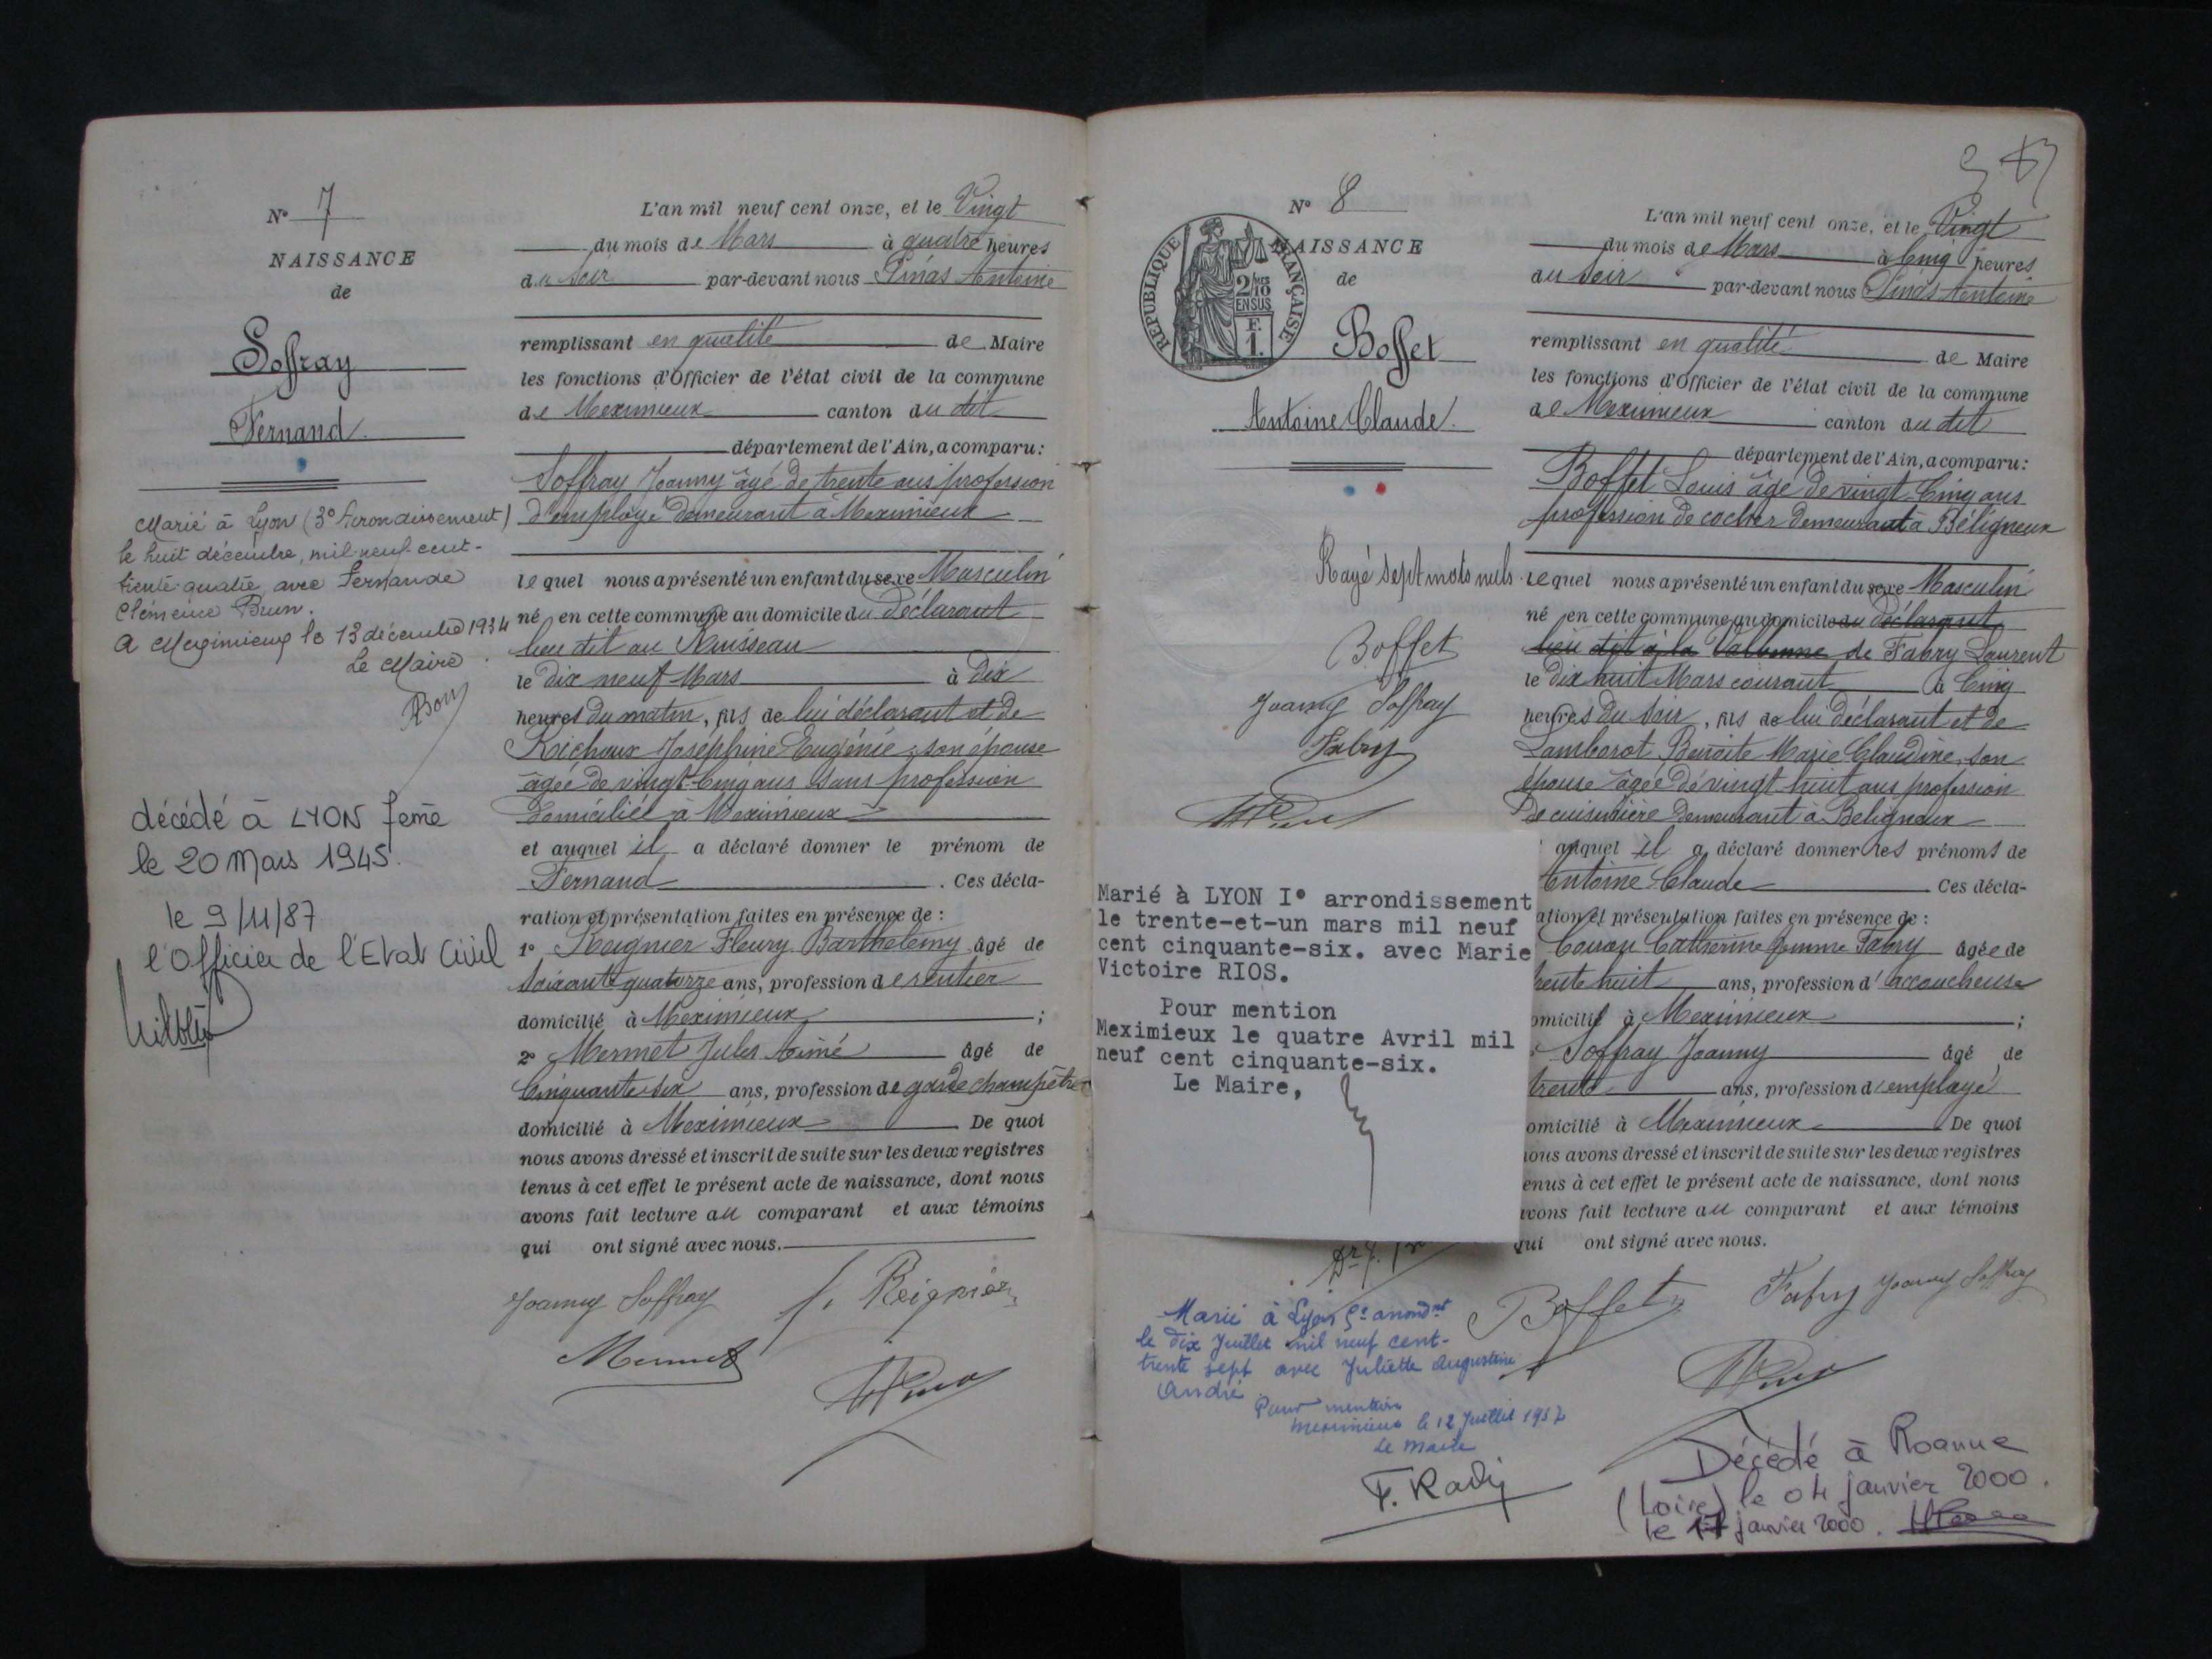 N° 7
NAISSANCE
de
Soffray
Fernand
Marié à Lyon (3° Arrondissement)
le huit décembre, mil-neuf-cent-
trente-quatre avec Fernande
Clémence Brun.
A Meximieux le 13 décembre 1934
Le Maire
décédé à LYON 7eme
le 20 Mars 1945.
le 9/11/87
l'Officier de l'Etat Civil
L'an mil neuf cent onze, et le Vingt
du mois de Mars à quatre heures
du soir par-devant nous Pinâs Antoine
remplissant en qualité de Maire
les fonctions d'Officier de l'état civil de la commune
de Meximieux canton du dit
département de l'Ain, a comparu :
Soffray Joanny âgé de trente ans profession
d'employé demeurant à Meximieux
lequel nous a présenté un enfant du sexe Masculin
né en cette commune au domicile du déclarant
lieu dit au Ruisseau
le dix neuf Mars à Dix
heures du matin, fils de lui déclarant et de
Richoux Joséphine Eugénie, son épouse
âgée de vingt-Cinq ans sans profession
domiciliée à Meximieux
et auquel il a déclaré donner le prénom de
Fernand . Ces décla-
ration et présentation faites en présence de :
1° Reignier Fleury Barthelemy âgé de
Soixante quatorze ans, profession de rentier
domicilié à Meximieux ;
2° Mermet Jules Aimé âgé de
Cinquante six ans, profession de garde champêtre
domicilié à Meximieux De quoi
nous avons dressé et inscrit de suite sur les deux registres
tenus à cet effet le présent acte de naissance, dont nous
avons fait lecture au comparant et aux témoins
qui ont signé avec nous.
Joanny Soffray F. Reignier
Mermet
N° 8
RÉPUBLIQUE FRANÇAISE
2/10 EN SUS
F. 1.
NAISSANCE
de
Boffet
Antoine Claude
Rayé sept mots nuls.
Boffet
Joanny Soffray
Fabry
Marié à LYON I° arrondissement
le trente-et-un mars mil neuf
cent cinquante-six. avec Marie
Victoire RIOS.
Pour mention
Meximieux le quatre Avril mil
neuf cent cinquante-six.
Le Maire,
Marié à Lyon 5e arrondt
le dix Juillet mil neuf cent-
trente sept avec Juliette Augustine
André
Pour mention
Meximieux le 12 Juillet 1937
Le Maire
L'an mil neuf cent onze, et le Vingt
du mois de Mars à Cinq heures
du soir par-devant nous Pinâs Antoine
remplissant en qualité de Maire
les fonctions d'Officier de l'état civil de la commune
de Meximieux canton du dit
département de l'Ain, a comparu :
Boffet Louis âgé de vingt-Cinq ans
profession de cocher demeurant à Béligneux
lequel nous a présenté un enfant du sexe Masculin
né en cette commune au domicile du déclarant
lieu dit à la Valbonne de Fabry Laurent
le dix huit Mars courant à Cinq
heures du soir, fils de lui déclarant et de
Lamberot Benoite Marie Claudine, son
épouse âgée de vingt huit ans profession
de cuisinière demeurant à Béligneux
auquel il a déclaré donner les prénoms de
Antoine Claude . Ces décla-
ation et présentation faites en présence de :
Catherine femme Fabry âgée de
trente huit ans, profession d'accoucheuse
omicilié à Meximieux ;
Soffray Joanny âgé de
trente ans, profession d'employé
omicilié à Meximieux De quoi
nous avons dressé et inscrit de suite sur les deux registres
enus à cet effet le présent acte de naissance, dont nous
avons fait lecture au comparant et aux témoins
qui ont signé avec nous.
Boffet Fabry Joanny Soffray
Décédé à Roanne
(Loire) le 04 janvier 2000.
le 17 janvier 2000.